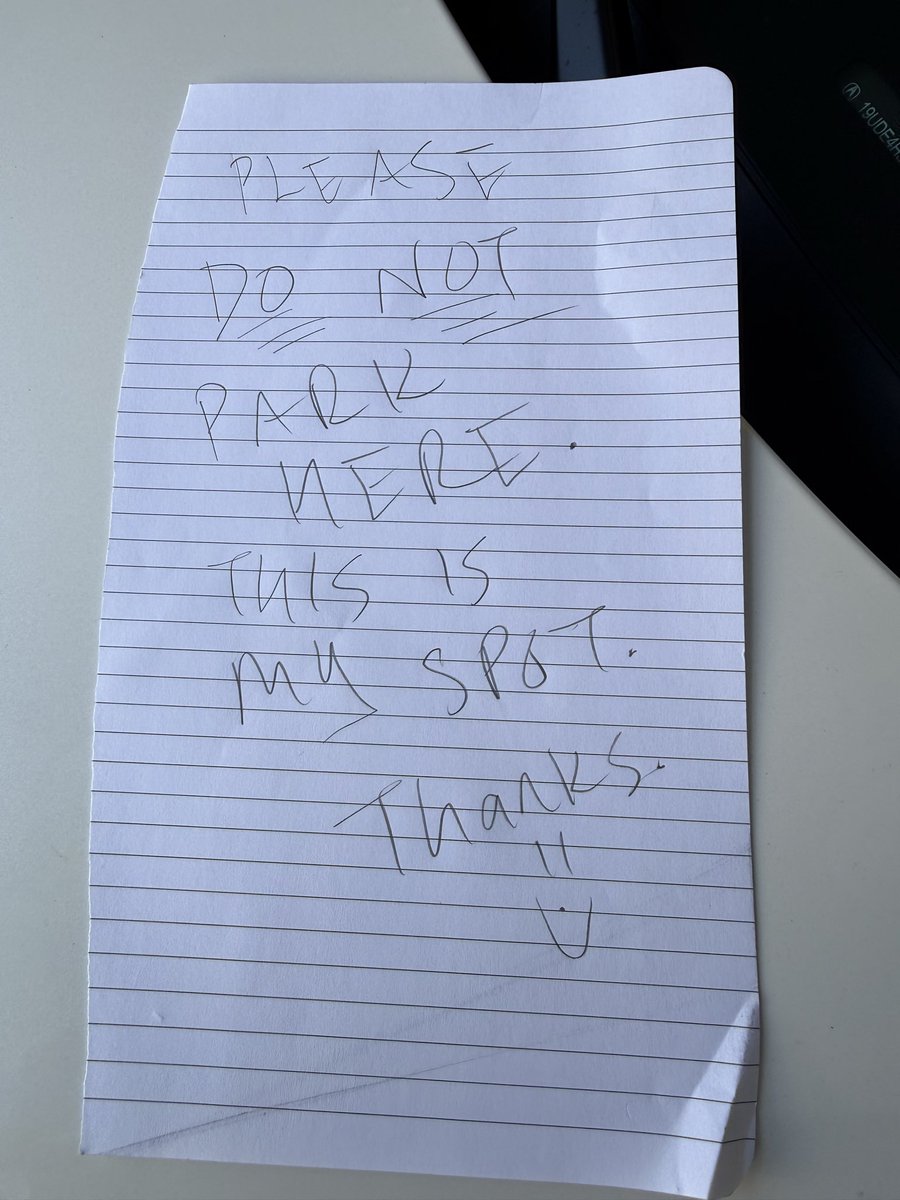 PLEASE
DO NOT
PARK
HERE.
THIS IS
MY SPOT.
Thanks.